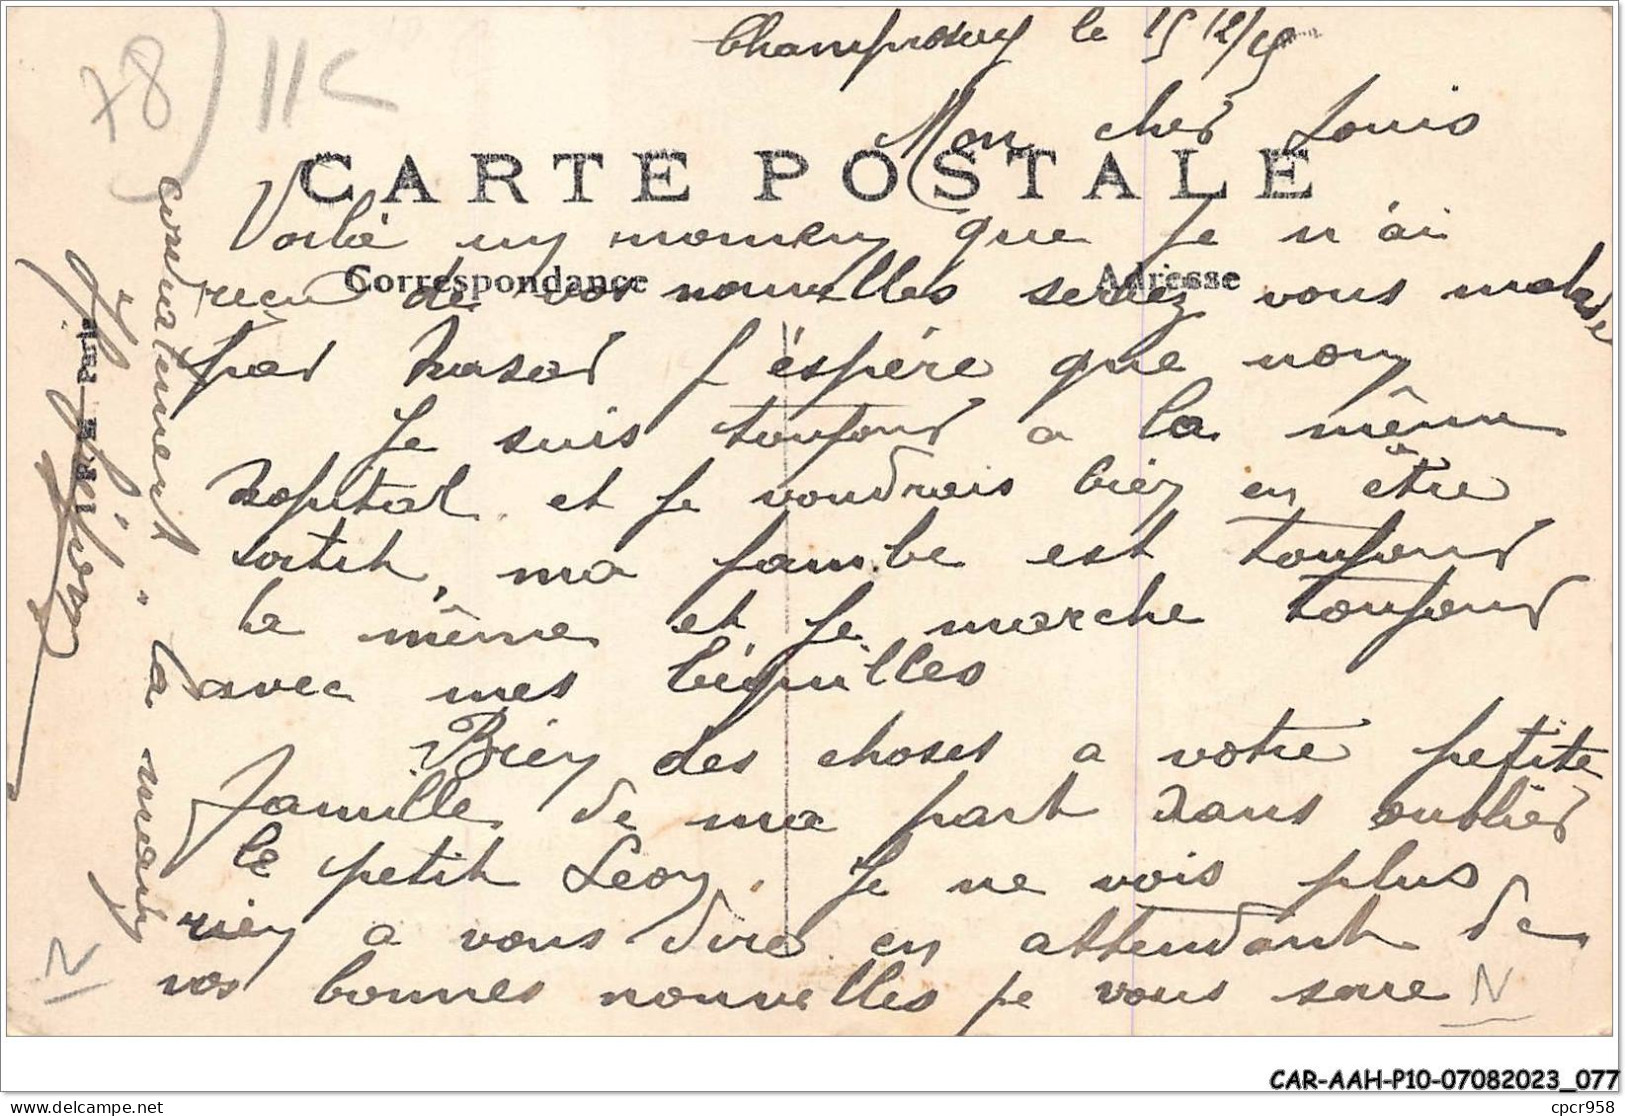 Champrosay le 15 12/15
78) 11C
Mon cher Louis
CARTE POSTALE
Voilà un moment que Je n'ai
Correspondance
Adresse
recu de vos nouvelles seriez vous malade
par hasar J'éspére que non
Je suis toujour a la même
hopital et Je voudrais bien en être
sortit, ma jambe est toujour
la même et Je marche toujour
avec mes béquilles
Bien des choses a votre petite
famille de ma part sans oublier
le petit Leon. Je ne vois plus
rien a vous dire en attendant de
vos bonnes nouvelles je vous sere
cordialement la main
N
N
CAR-AAH-P10-07082023_077
cpcr958